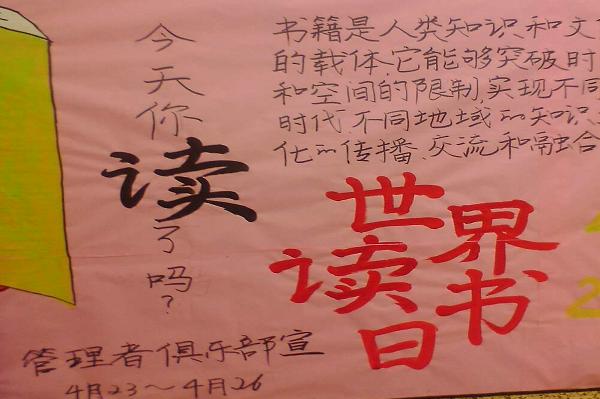 今天你读了吗?
书籍是人类知识和文
的载体,它能够突破时
和空间的限制,实现不同
时代,不同地域的知识
化的传播、交流和融合
世界
读书
日
管理者俱乐部宣
4月23～4月26